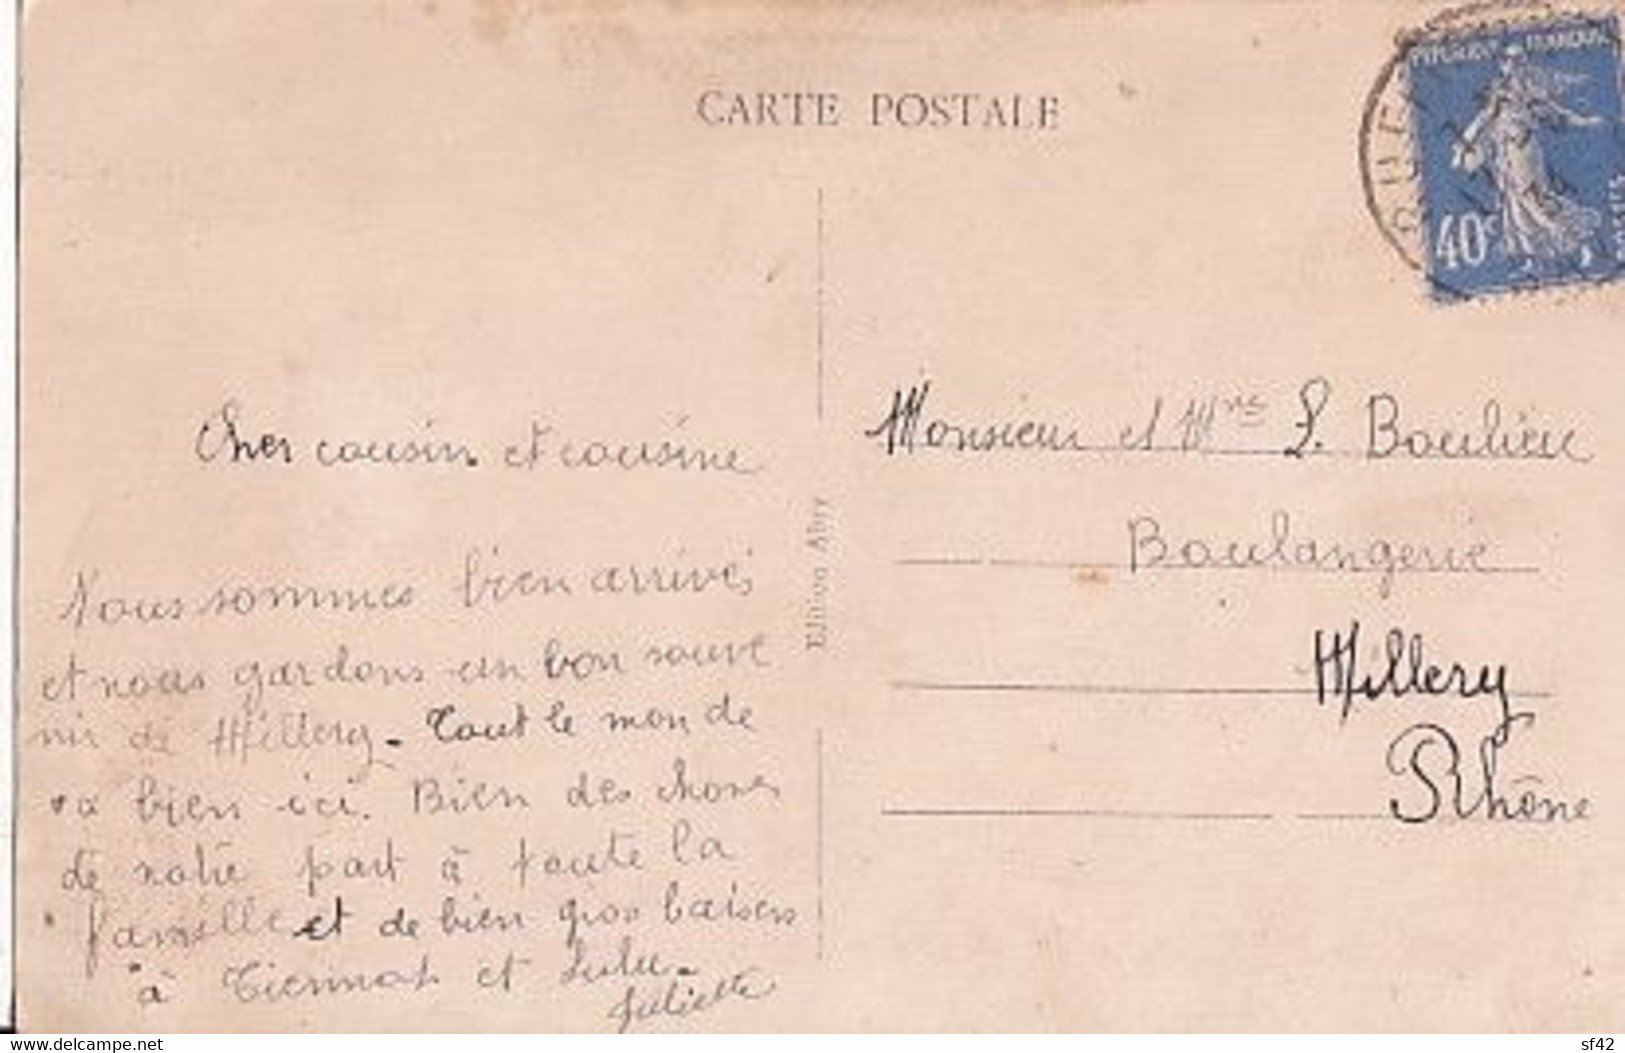 CARTE POSTALE
RÉPUBLIQUE FRANÇAISE
40c
POSTES
Cher cousin et cousine
Nous sommes bien arrivés
et nous gardons un bon souve
nir de Millery - Tout le mon de
va bien ici. Bien des choses
de notre part à toute la
famille et de bien gros baisers
à et Lulu -
Juliette
Edition Abry
Monsieur et Mme L. Boulieu
Boulangerie
Millery
Rhône
www.delcampe.net
sf42